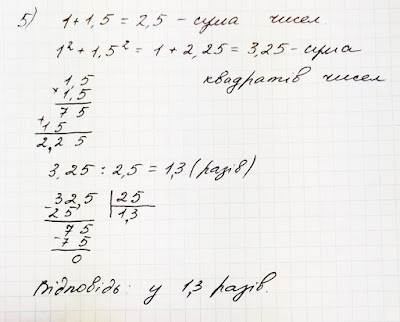 5) 1+1,5 = 2,5 - сума чисел.
1² + 1,5² = 1 + 2,25 = 3,25 - сума
квадратів чисел
1,5
× 1,5
7 5
+ 1 5
2,2 5
3,25 : 2,5 = 1,3 (разів)
32,5 | 25
- 25 | 1,3
7 5
- 7 5
0
Відповідь: у 1,3 разів.